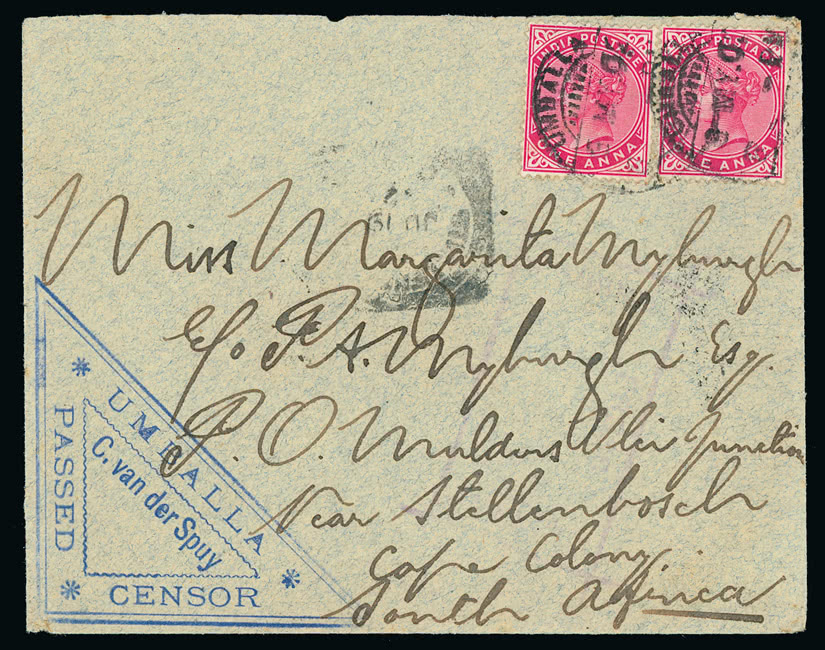 INDIA POSTAGE
ONE ANNA
UMBALLA
INDIA POSTAGE
ONE ANNA
Miss Margarita Myburgh
C/o P. A. Myburgh Esq.
P. O. Mulders Vlei Junction
Near Stellenbosch
Cape Colony
South Africa
PASSED
UMBALLA
CENSOR
C. van der Spuy